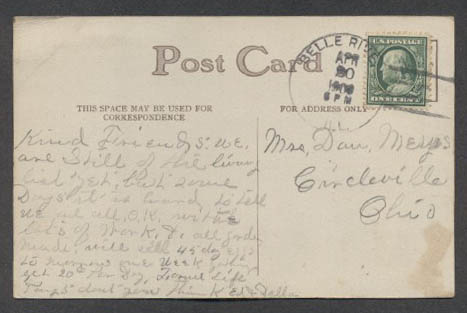 Post Card
BELLE RI
APR
20
1909
6 PM
U.S. POSTAGE
ONE CENT
THIS SPACE MAY BE USED FOR
CORRESPONDENCE
FOR ADDRESS ONLY
Kind Friend S. We
are Still of the living
list yet, but some
Days it is hard to tell
We are all O.K. with
lots of Work, & all good
made will sell 45 doz Eggs
to morrow one Week
get 20¢ Per Doz,
dont you think Ed & Della
Mrs, Dan, Meyps
Circleville
Ohio